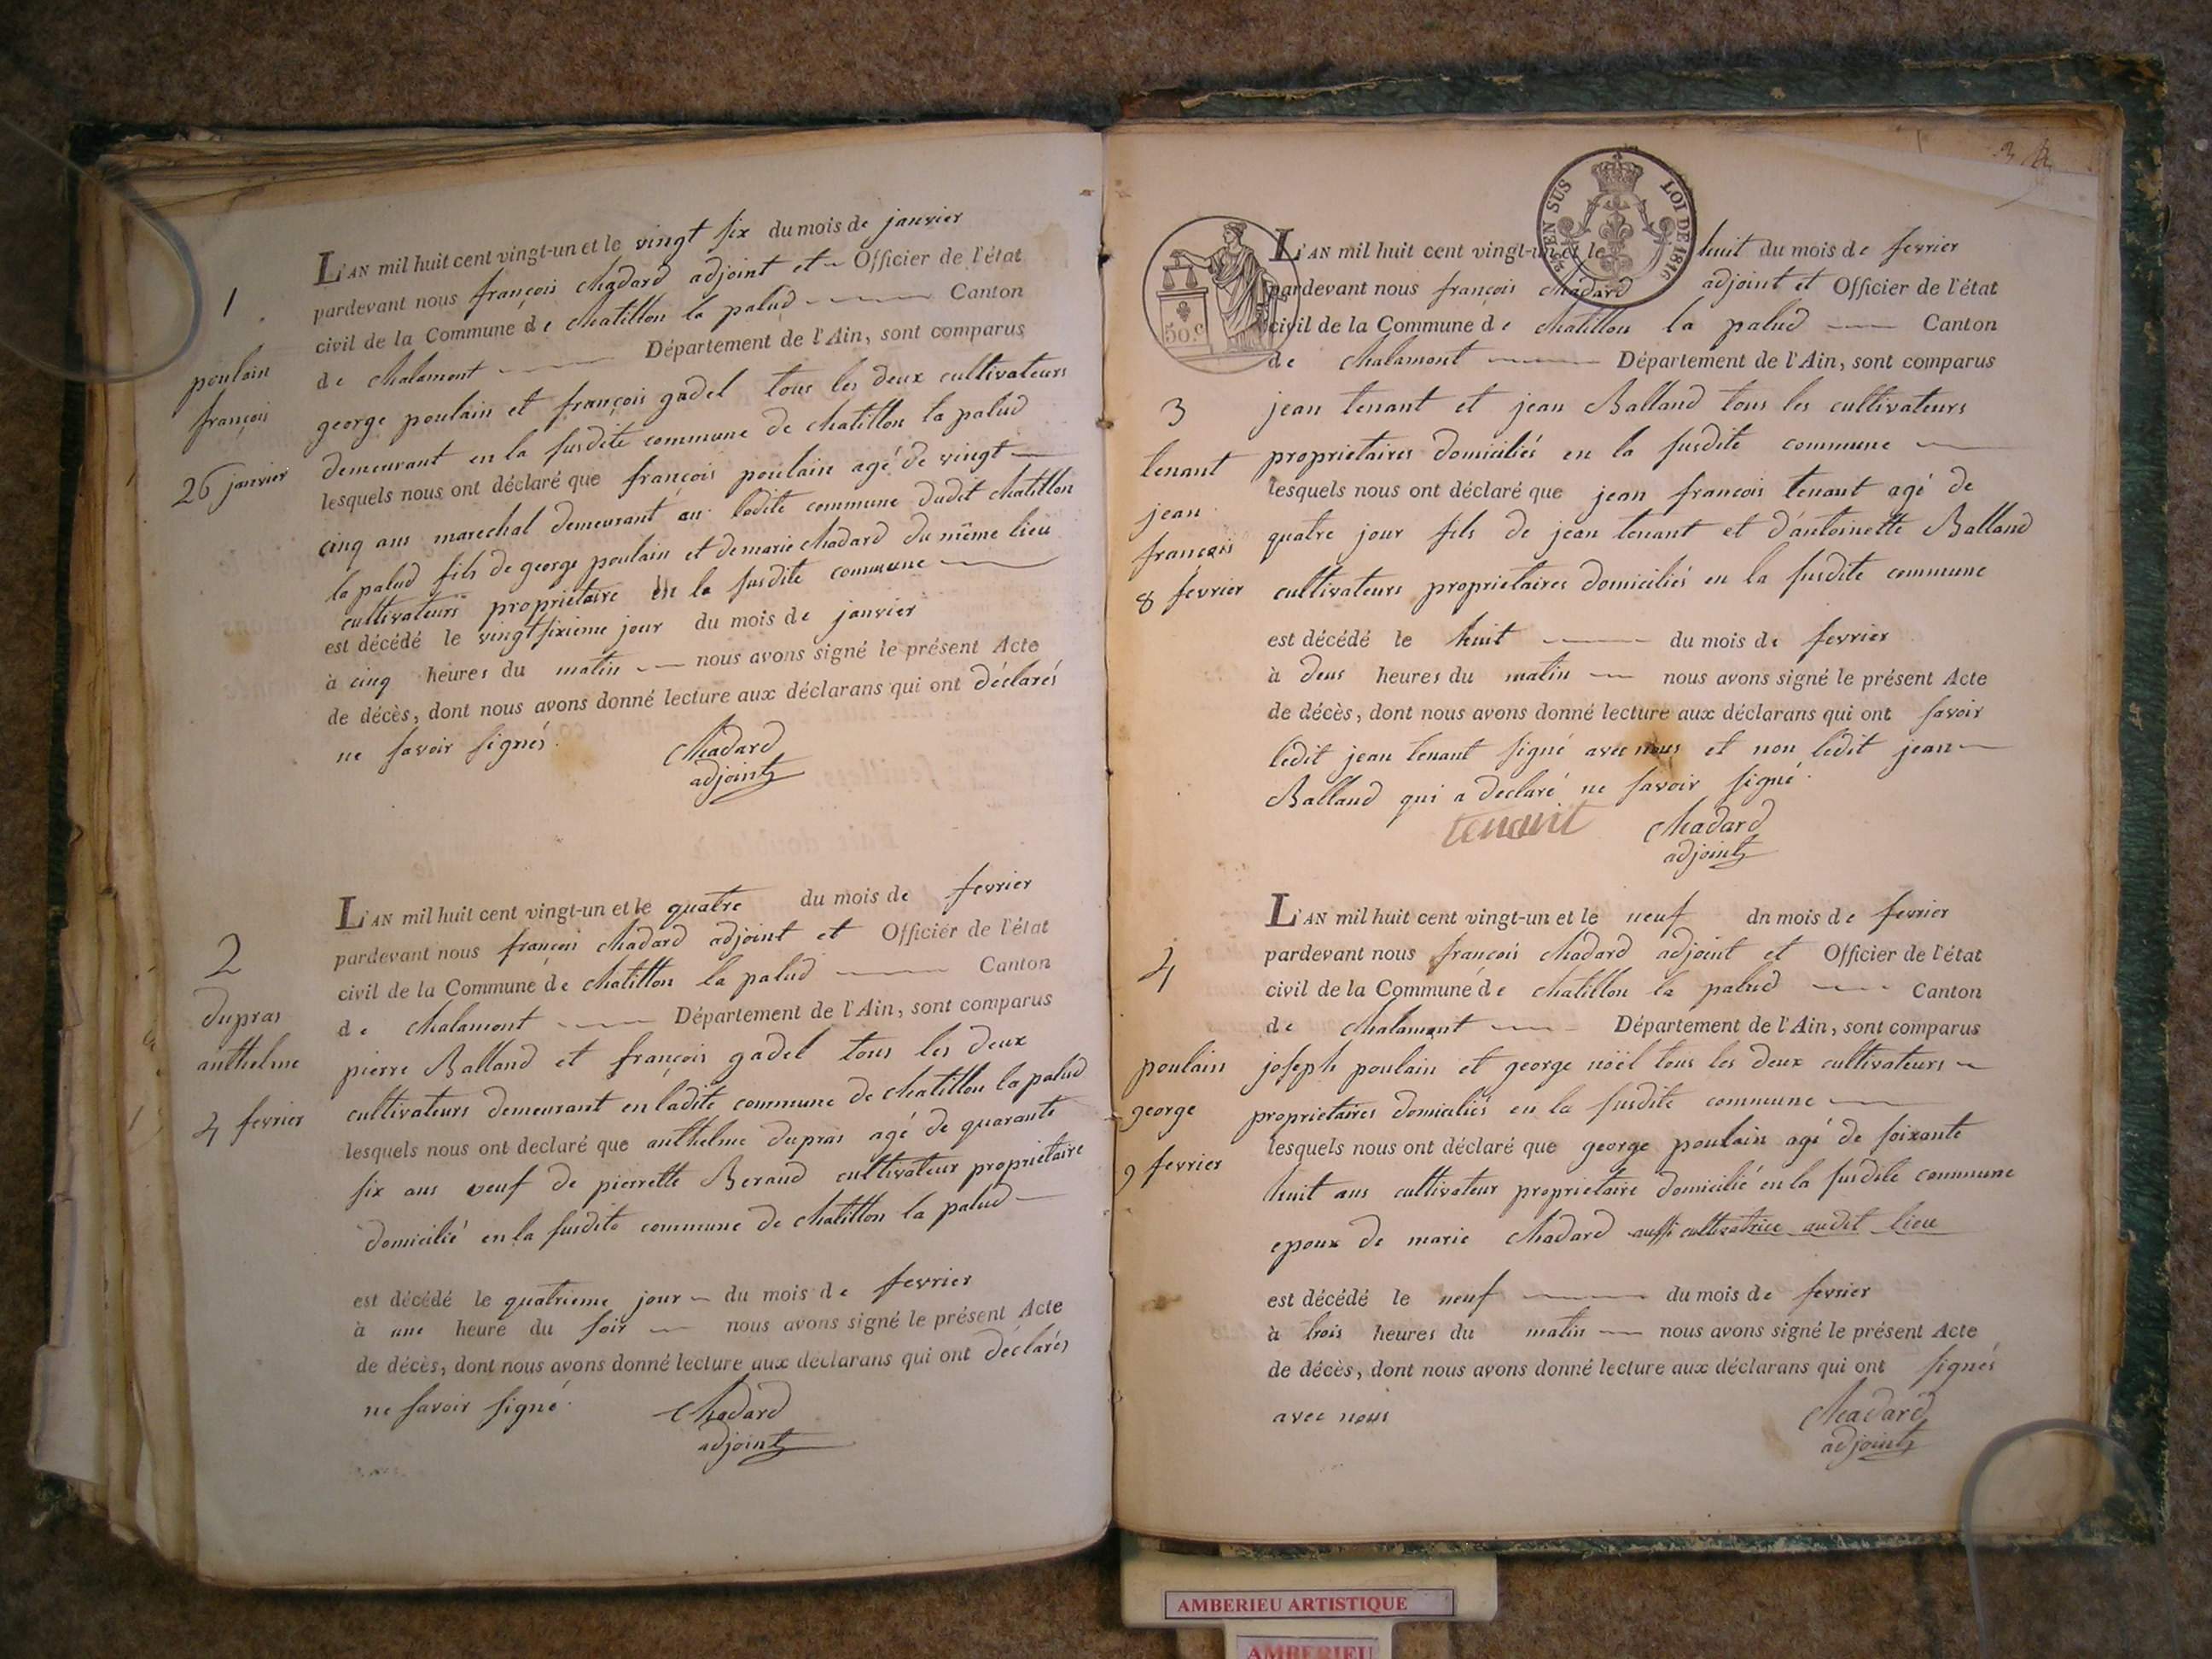 1
poulain
françois
26 janvier
L'AN mil huit cent vingt-un et le vingt six du mois de janvier
pardevant nous françois chadard adjoint et Officier de l'état
civil de la Commune de chatillon la palud Canton
de chalamont Département de l'Ain, sont comparus
george poulain et françois gadel tous les deux cultivateurs
demeurant en la susdite commune de chatillon la palud
lesquels nous ont déclaré que françois poulain agé de vingt
cinq ans marechal demeurant en ladite commune dudit chatillon
la palud fils de george poulain et de marie chadard du même lieu
cultivateurs proprietaire en la susdite commune
est décédé le vingt sixieme jour du mois de janvier
à cinq heures du matin nous avons signé le présent Acte
de décès, dont nous avons donné lecture aux déclarans qui ont déclarés
ne savoir signés.
chadard
adjoint
2
dupras
anthelme
4 fevrier
L'AN mil huit cent vingt-un et le quatre du mois de fevrier
pardevant nous françois chadard adjoint et Officier de l'état
civil de la Commune de chatillon la palud Canton
de chalamont Département de l'Ain, sont comparus
pierre Balland et françois gadel tous les deux
cultivateurs demeurant en ladite commune de chatillon la palud
lesquels nous ont declaré que anthelme dupras agé de quarante
six ans veuf de pierrette Beraud cultivateur proprietaire
domicilié en la susdite commune de chatillon la palud
est décédé le quatrieme jour du mois de fevrier
à une heure du soir nous avons signé le présent Acte
de décès, dont nous avons donné lecture aux déclarans qui ont déclarés
ne savoir signé.
chadard
adjoint
50.c
EN SUS LOI DE 1816
3
tenant
jean
françois
8 fevrier
L'AN mil huit cent vingt-un et le huit du mois de fevrier
pardevant nous françois chadard adjoint et Officier de l'état
civil de la Commune de chatillon la palud Canton
de chalamont Département de l'Ain, sont comparus
jean tenant et jean Balland tous les cultivateurs
proprietaires domiciliés en la susdite commune
lesquels nous ont déclaré que jean françois tenant agé de
quatre jour fils de jean tenant et d'antoinette Balland
cultivateurs proprietaires domiciliés en la susdite commune
est décédé le huit du mois de fevrier
à deus heures du matin nous avons signé le présent Acte
de décès, dont nous avons donné lecture aux déclarans qui ont savoir
ledit jean tenant signé avec nous et non ledit jean
Balland qui a declaré ne savoir signé.
tenant
chadard
adjoint
4
poulain
george
9 fevrier
L'AN mil huit cent vingt-un et le neuf dn mois de fevrier
pardevant nous françois chadard adjoint et Officier de l'état
civil de la Commune de chatillon la palud Canton
de chalamont Département de l'Ain, sont comparus
joseph poulain et george noël tous les deux cultivateurs
proprietaires domiciliés en la susdite commune
lesquels nous ont déclaré que george poulain agé de soixante
huit ans cultivateur proprietaire domicilié en la susdite commune
epoux de marie chadard aussi cultivatrice audit lieu
est décédé le neuf du mois de fevrier
à trois heures du matin nous avons signé le présent Acte
de décès, dont nous avons donné lecture aux déclarans qui ont signés
avec nous
chadard
adjoint
AMBERIEU ARTISTIQUE
AMBERIEU